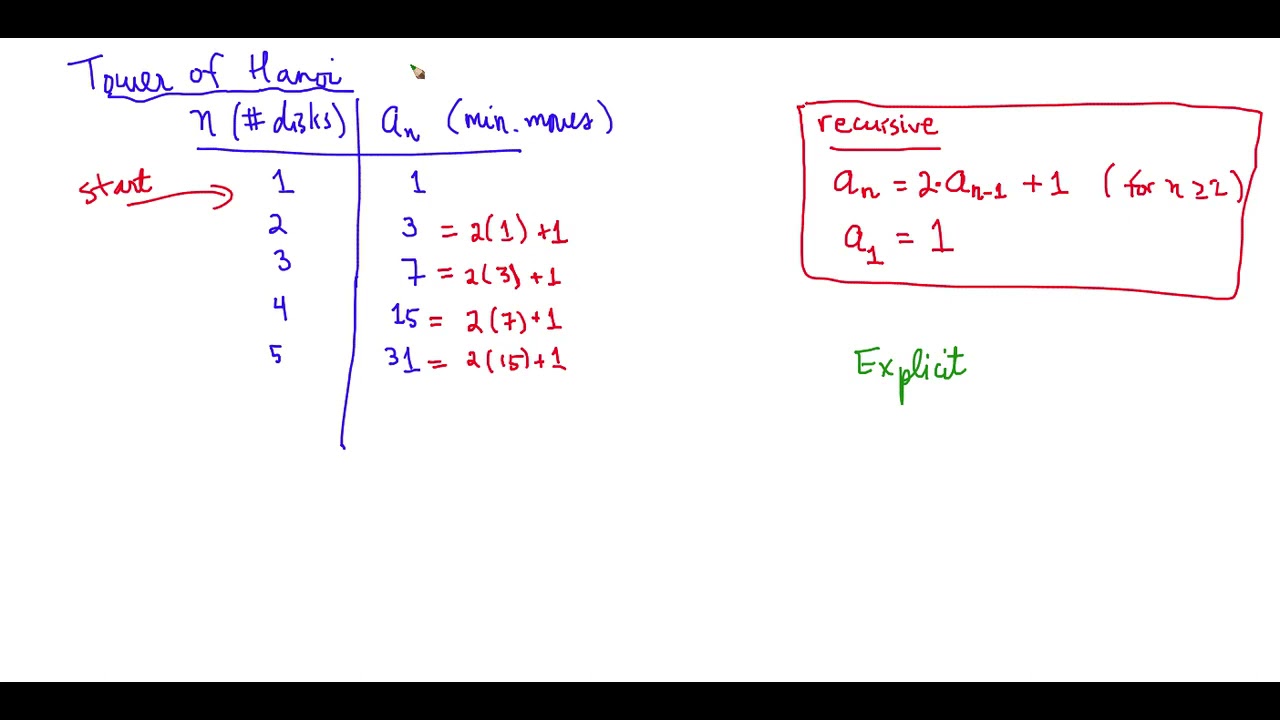 Tower of Hanoi
n (# disks) an (min. moves)
start 1 1
2 3 = 2(1) +1
3 7 = 2(3) +1
4 15 = 2(7) +1
5 31 = 2(15) +1
recursive
an = 2·an-1 + 1 (for n ≥ 2)
a1 = 1
Explicit